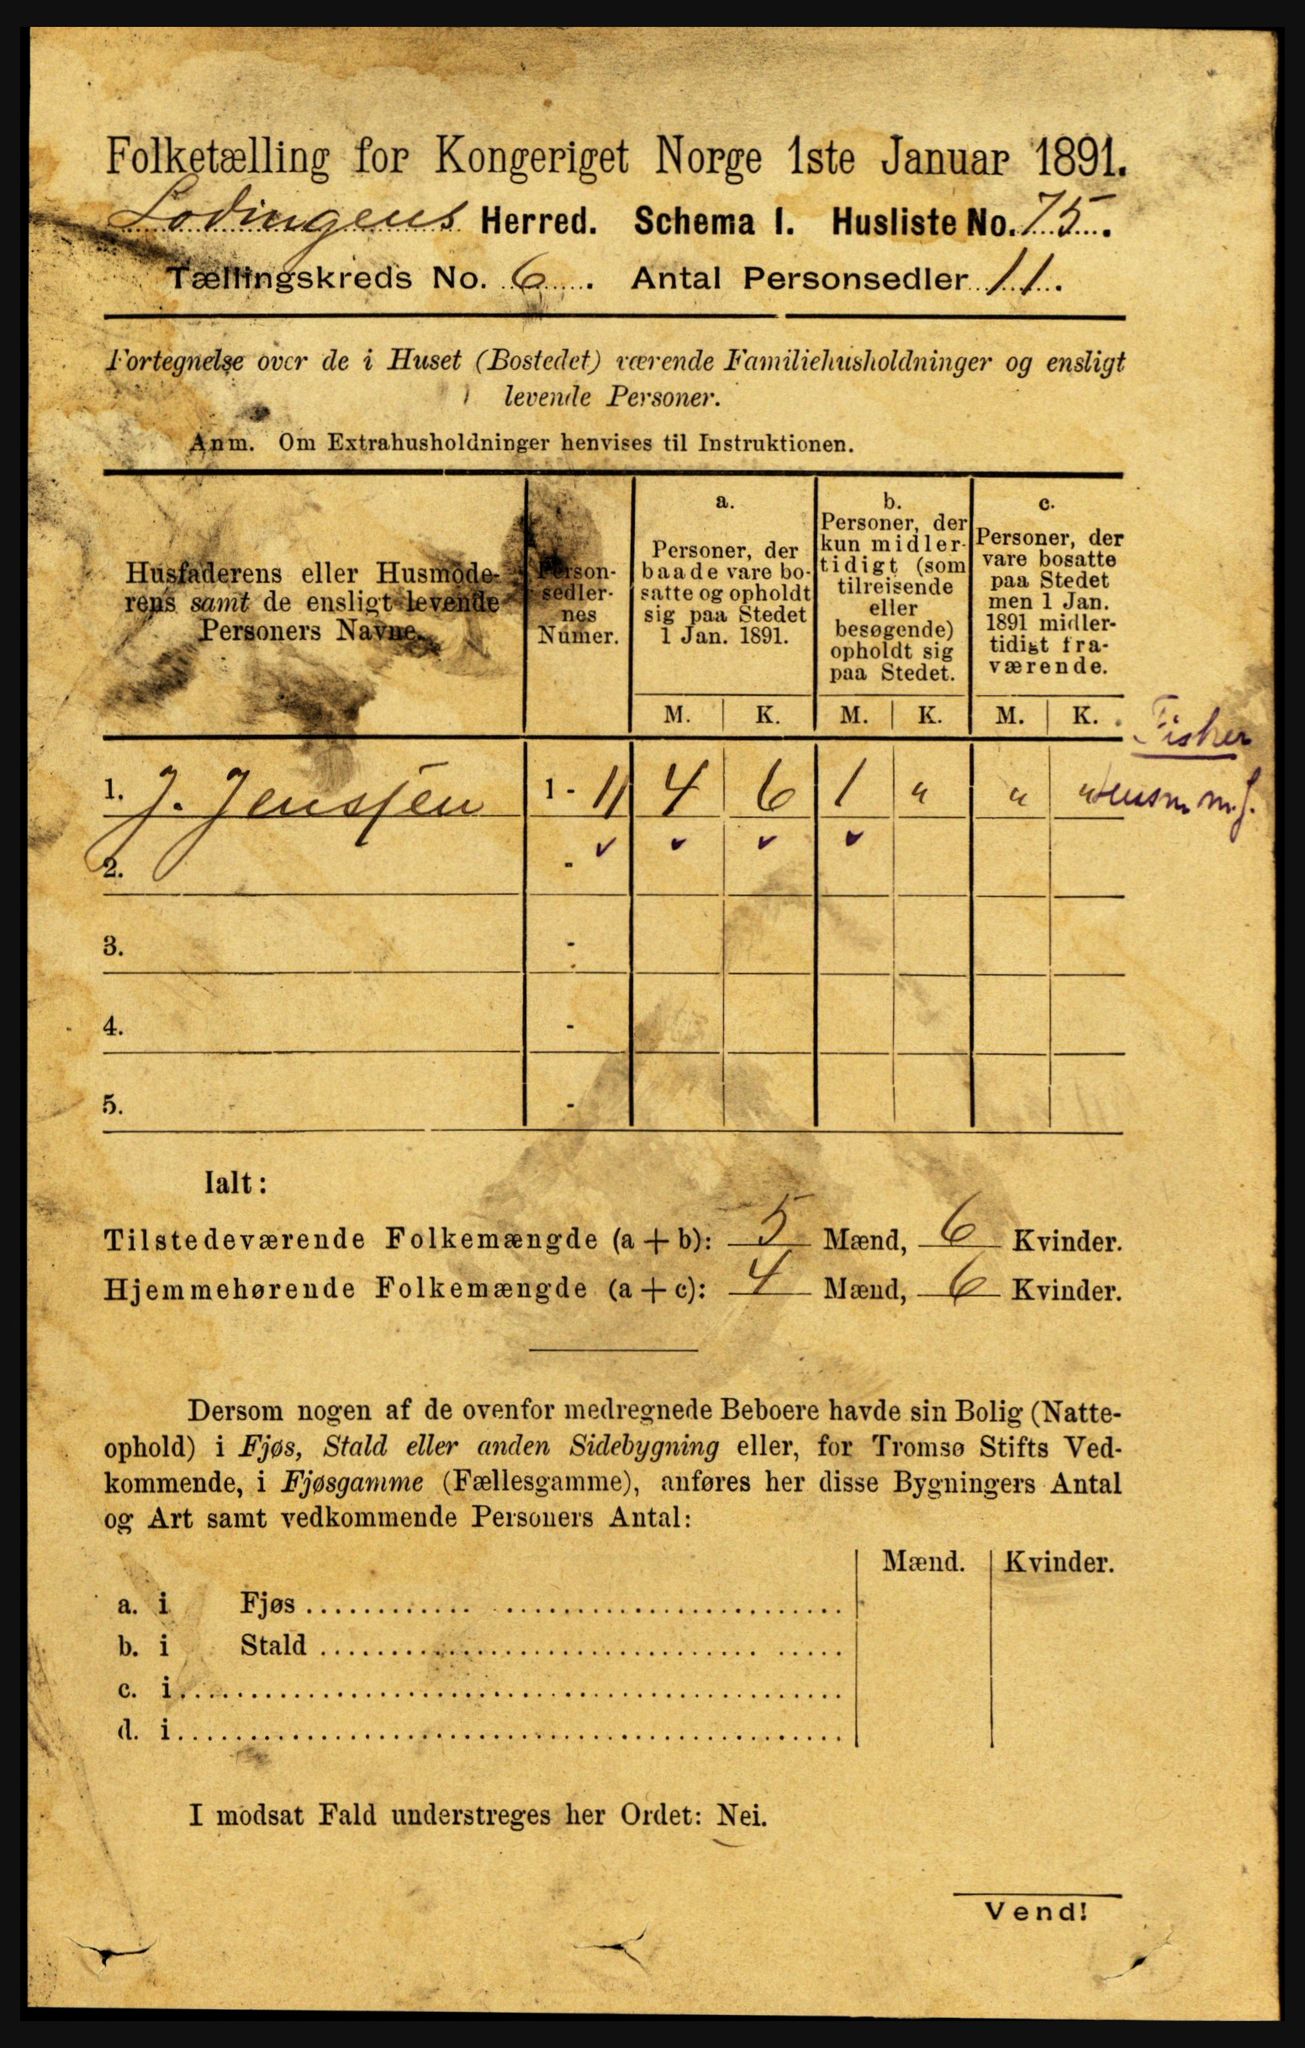 Folketælling for Kongeriget Norge 1ste Januar 1891.
Lodingens Herred. Schema I. Husliste No. 75.
Tællingskreds No. 6. Antal Personsedler 11.
Fortegnelse over de i Huset (Bostedet) værende Familiehusholdninger og ensligt
levende Personer.
Anm. Om Extrahusholdninger henvises til Instruktionen.
Husfaderens eller Husmode-
rens samt de ensligt levende
Personers Navne.
Person-
sedler-
nes
Numer.
a.
Personer, der
baade vare bo-
satte og opholdt
sig paa Stedet
1 Jan. 1891.
b.
Personer, der
kun midler-
tidigt (som
tilreisende
eller
besøgende)
opholdt sig
paa Stedet.
c.
Personer, der
vare bosatte
paa Stedet
men 1 Jan.
1891 midler-
tidigt fra-
værende.
M. K. M. K. M. K.
Fisker
1. J. Jenssen 1 - 11 4 6 1 " " "
2. -
3. -
4. -
5. -
Ialt:
Tilstedeværende Folkemængde (a + b): 5 Mænd, 6 Kvinder.
Hjemmehørende Folkemængde (a + c): 4 Mænd, 6 Kvinder.
Dersom nogen af de ovenfor medregnede Beboere havde sin Bolig (Natte-
ophold) i Fjøs, Stald eller anden Sidebygning eller, for Tromsø Stifts Ved-
kommende, i Fjøsgamme (Fællesgamme), anføres her disse Bygningers Antal
og Art samt vedkommende Personers Antal:
Mænd. Kvinder.
a. i Fjøs
b. i Stald
c. i
d. i
I modsat Fald understreges her Ordet: Nei.
Vend!